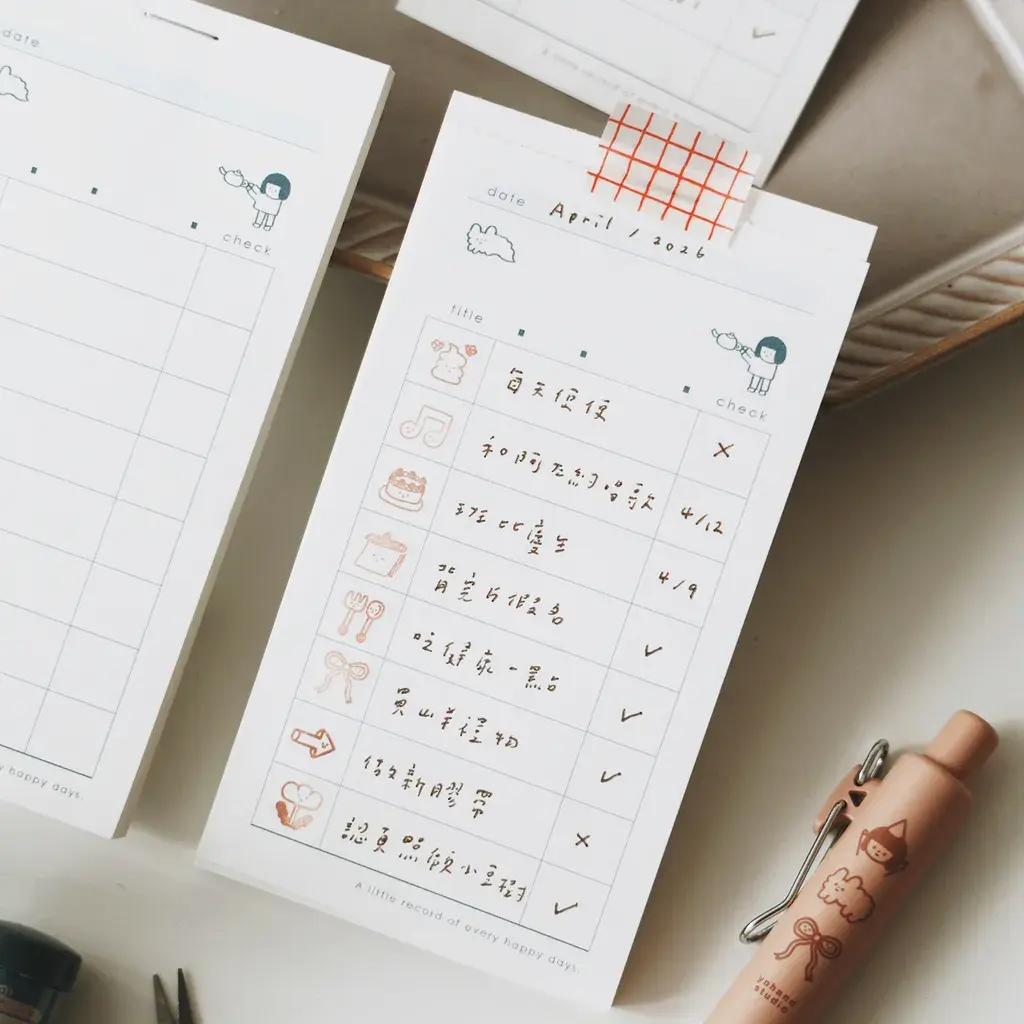 date
check
y happy days.
date April / 2026
title
check
每天便便 ×
和阿左約唱歌 4/12
班比慶生 4/9
背完片假名 ✓
吃健康一點 ✓
買山羊禮物 ✓
做新月膠帶 ×
認真照顧小豆樹 ✓
A little record of every happy days.
yohand studio